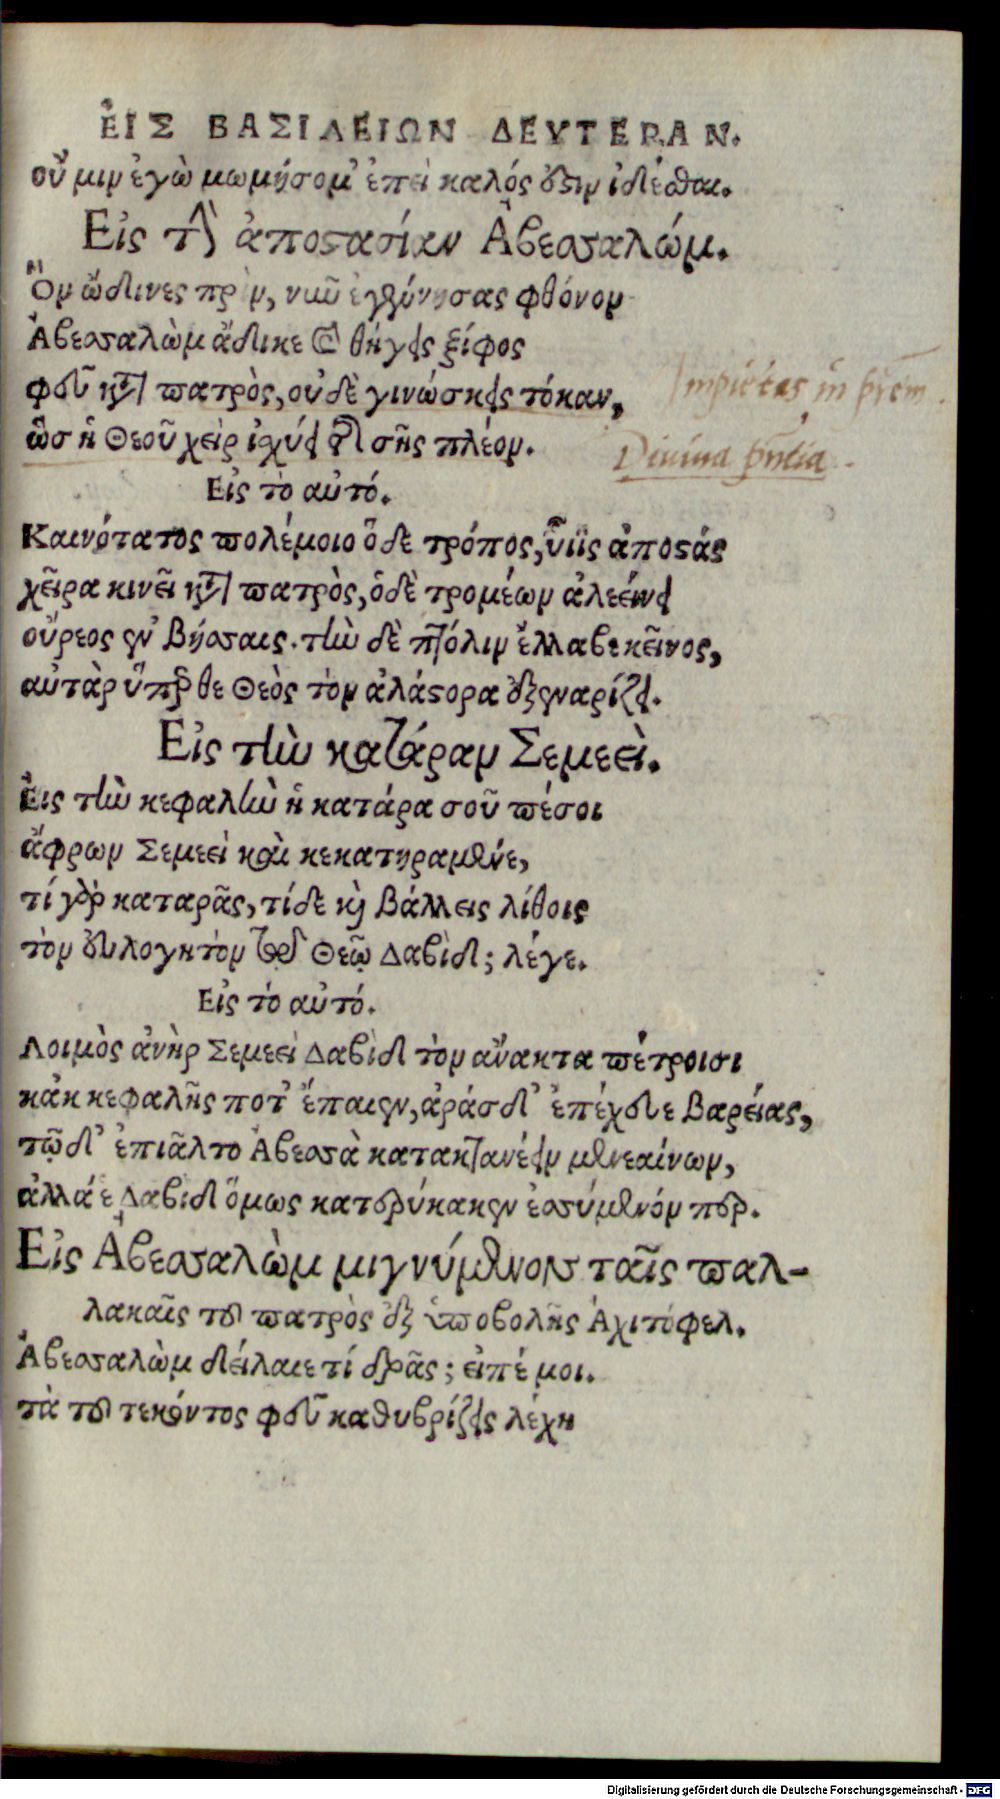 ἘΙΣ ΒΑΣΙΛΕΙΩΝ ΔΕΥΤΕΡΑΝ.
οὔ μιν ἐγὼ μωμήσομ' ἐπεὶ καλός ὅστιν ἰδέσθαι.
Εἰς τὴν ἀποστασίαν Ἀβεσσαλώμ.
Ὃν ὤδινες πρὶν, νῦν ἐγγύνησας φθόνον
Ἀβεσσαλὼμ ἄδικε καὶ θήγεις ξίφος
φεῦ κατὰ πατρὸς, οὐδὲ γινώσκεις τόκαν,
ὣσ ἡ Θεοῦ χεὶρ ἰσχύει τῆς σῆς πλέον.
Εἰς τὸ αὐτό.
Καινότατος πολέμοιο ὅδε τρόπος, ὑιὶς ἀποστάς
χεῖρα κινεῖ κατὰ πατρὸς, ὁδὲ τρομέων ἀλεείνει
οὔρεος ἐν βήσσαις. τὴν δὲ πτόλιν ἔλλαβε κεῖνος,
αὐτὰρ ὕπερθε Θεὸς τὸν ἀλάστορα ἐξεναρίζει.
Εἰς τὴν κατάραν Σεμεεὶ.
Ἐις τὴν κεφαλὴν ἡ κατάρα σοῦ πέσοι
ἄφρων Σεμεεὶ καὶ κεκατηραμένε,
τί γὰρ καταρᾶς, τίδε καὶ βάλλεις λίθοις
τὸν εὐλογητὸν τῷ Θεῷ Δαβὶδ; λέγε.
Εἰς τὸ αὐτό.
Λοιμὸς ἀνὴρ Σεμεεὶ Δαβὶδ τὸν ἄνακτα πέτροισι
κἀκ κεφαλῆς ποτ' ἔπαιεν, ἀράσδ' ἐπέχευε βαρείας,
τῷδ' ἐπιᾶλτο Ἀβεσσὰ κατακτανέειν μενεαίνων,
ἀλλά ἑ Δαβὶδ ὅμως κατερύκακεν ἐσσύμενόν περ.
Εἰς Ἀβεσσαλὼμ μιγνύμενον ταῖς παλ-
λακαῖς τοῦ πατρὸς ἐξ ὑποβολῆς Ἀχιτόφελ.
Ἀβεσσαλὼμ δείλαιε τί δρᾶς; εἰπέ μοι.
τὰ τοῦ τεκόντος φεῦ καθυβρίζεις λέχη
Impietas in pr̃em.
Divina
Digitalisierung gefördert durch die Deutsche Forschungsgemeinschaft - DFG